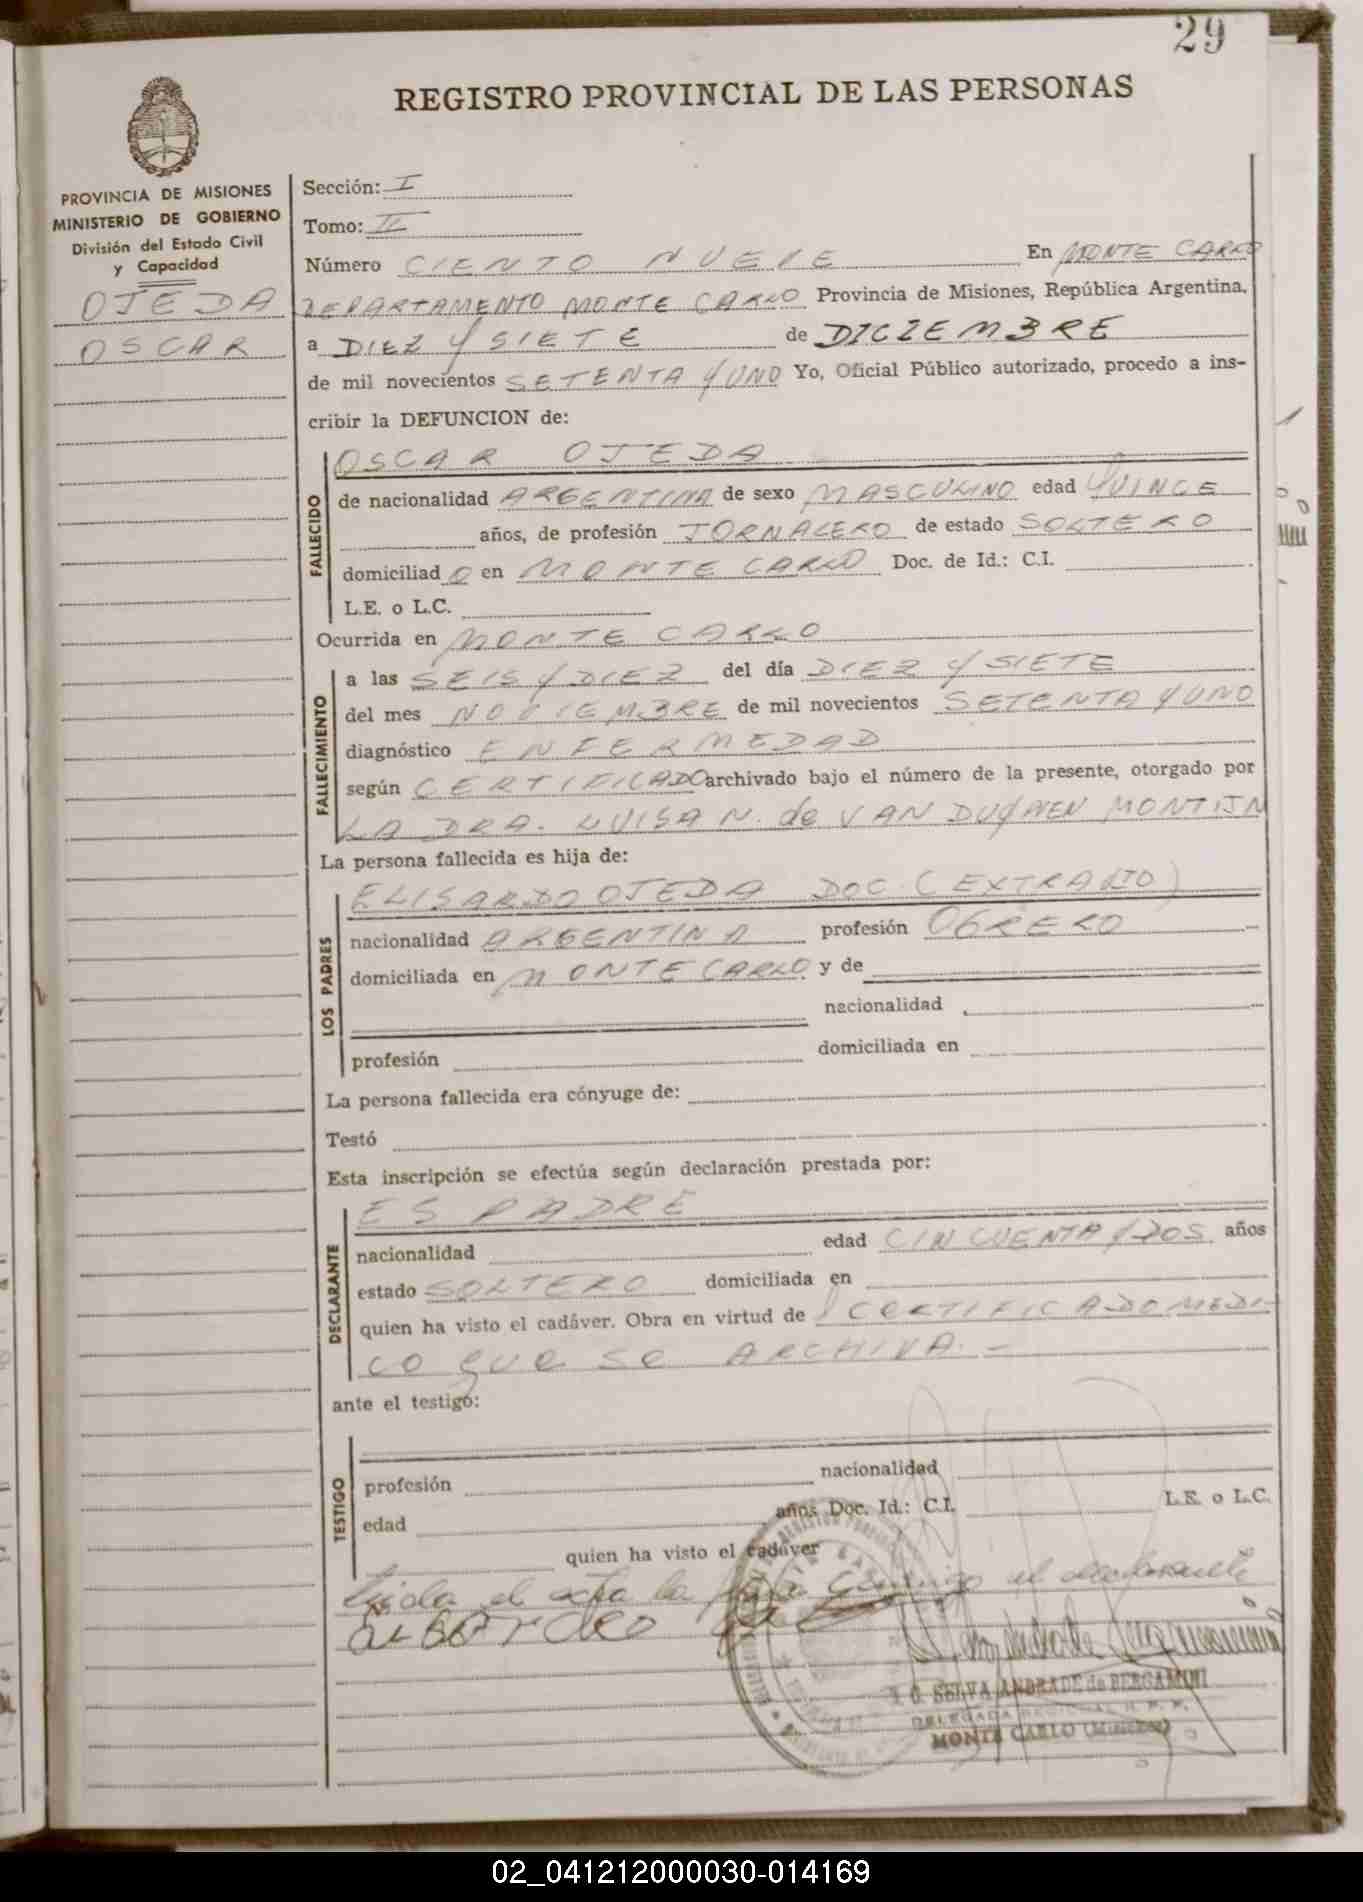 29
REGISTRO PROVINCIAL DE LAS PERSONAS
PROVINCIA DE MISIONES
MINISTERIO DE GOBIERNO
División del Estado Civil
y Capacidad
OJEDA
OSCAR
Sección: I
Tomo: II
Número CIENTO NUEVE En MONTE CARLO
DEPARTAMENTO MONTE CARLO Provincia de Misiones, República Argentina,
a DIEZ Y SIETE de DICIEMBRE
de mil novecientos SETENTA Y UNO Yo, Oficial Público autorizado, procedo a ins-
cribir la DEFUNCION de:
FALLECIDO
OSCAR OJEDA
de nacionalidad ARGENTINA de sexo MASCULINO edad QUINCE
años, de profesión JORNALERO de estado SOLTERO
domiciliado en MONTE CARLO Doc. de Id.: C.I.
L.E. o L.C.
Ocurrida en MONTE CARLO
FALLECIMIENTO
a las SEIS Y DIEZ del día DIEZ Y SIETE
del mes NOVIEMBRE de mil novecientos SETENTA Y UNO
diagnóstico ENFERMEDAD
según CERTIFICADO archivado bajo el número de la presente, otorgado por
LA DRA. LUISA N. de VAN MONTIJN
La persona fallecida es hija de:
LOS PADRES
ELISARDO OJEDA DOC. (EXTRAVIO)
nacionalidad ARGENTINA profesión OBRERO
domiciliada en MONTE CARLO y de
nacionalidad
profesión domiciliada en
La persona fallecida era cónyuge de:
Testó
Esta inscripción se efectúa según declaración prestada por:
DECLARANTE
ES PADRE
nacionalidad edad CINCUENTA Y DOS años
estado SOLTERO domiciliada en
quien ha visto el cadáver. Obra en virtud de CERTIFICADO MEDI-
CO QUE SE ARCHIVA.-
ante el testigo:
TESTIGO
profesión nacionalidad
edad años Doc. Id.: C.I. L.E. o L.C.
quien ha visto el cadáver
Leida el acta la el
SELVA ANDRADE de BERGAMINI
DELEGADA REGIONAL R. P. P.
MONTE CARLO (Misiones)
02_041212000030-014169